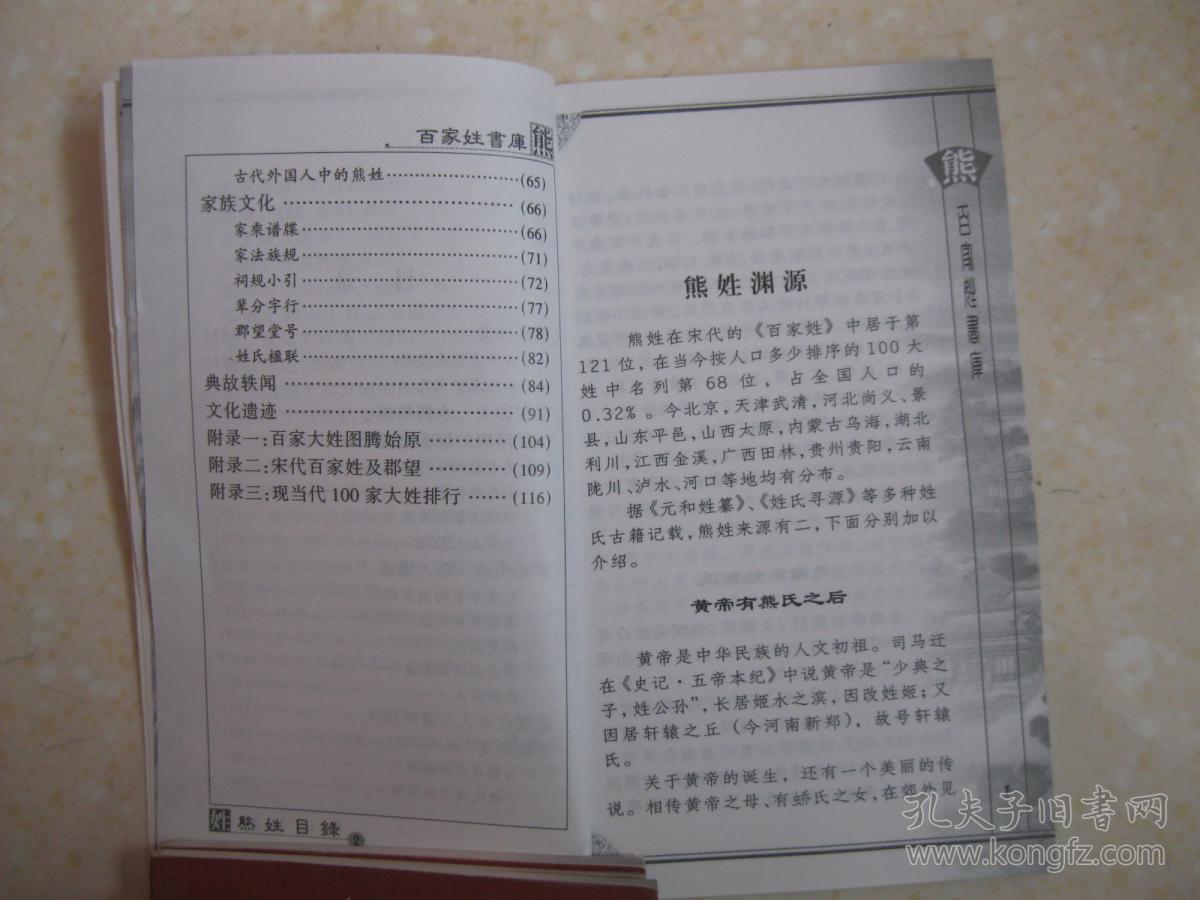 百家姓書庫 熊
古代外国人中的熊姓……………………(65)
家族文化……………………………(66)
家乘谱牒……………………………(66)
家法族规……………………………(71)
祠规小引……………………………(72)
辈分字行……………………………(77)
郡望堂号……………………………(78)
姓氏楹联……………………………(82)
典故轶闻……………………………(84)
文化遗迹……………………………(91)
附录一:百家大姓图腾始原…………(104)
附录二:宋代百家姓及郡望…………(109)
附录三:现当代100家大姓排行……(116)
姓 熊姓目錄 2
熊 百家姓書庫
熊姓渊源
熊姓在宋代的《百家姓》中居于第
121位,在当今按人口多少排序的100大
姓中名列第68位,占全国人口的
0.32%。今北京,天津武清,河北尚义、景
县,山东平邑,山西太原,内蒙古乌海,湖北
利川,江西金溪,广西田林,贵州贵阳,云南
陇川、泸水、河口等地均有分布。
据《元和姓纂》、《姓氏寻源》等多种姓
氏古籍记载,熊姓来源有二,下面分别加以
介绍。
黄帝有熊氏之后
黄帝是中华民族的人文初祖。司马迁
在《史记·五帝本纪》中说黄帝是“少典之
子,姓公孙”,长居姬水之滨,因改姓姬;又
因居轩辕之丘(今河南新郑),故号轩辕
氏。
关于黄帝的诞生,还有一个美丽的传
说。相传黄帝之母、有蟜氏之女,在郊外见
1
孔夫子旧书网
www.kongfz.com